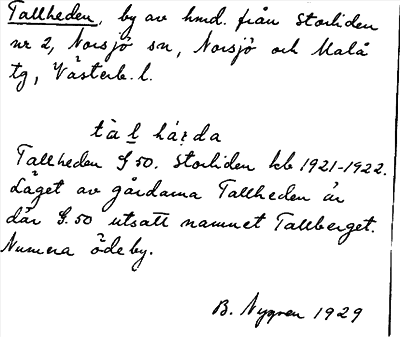 Tallheden, by av hmd. från Storliden
nr 2, Norsjö sn, Norsjö och Malå
tg, Västerb. l.
tàl hárda
Tallheden S 50. Storliden kb 1921-1922.
Läget av gårdarna Tallheden är
där S. 50 utsatt namnet Tallberget.
Numera ödeby.
B. Nygren 1929